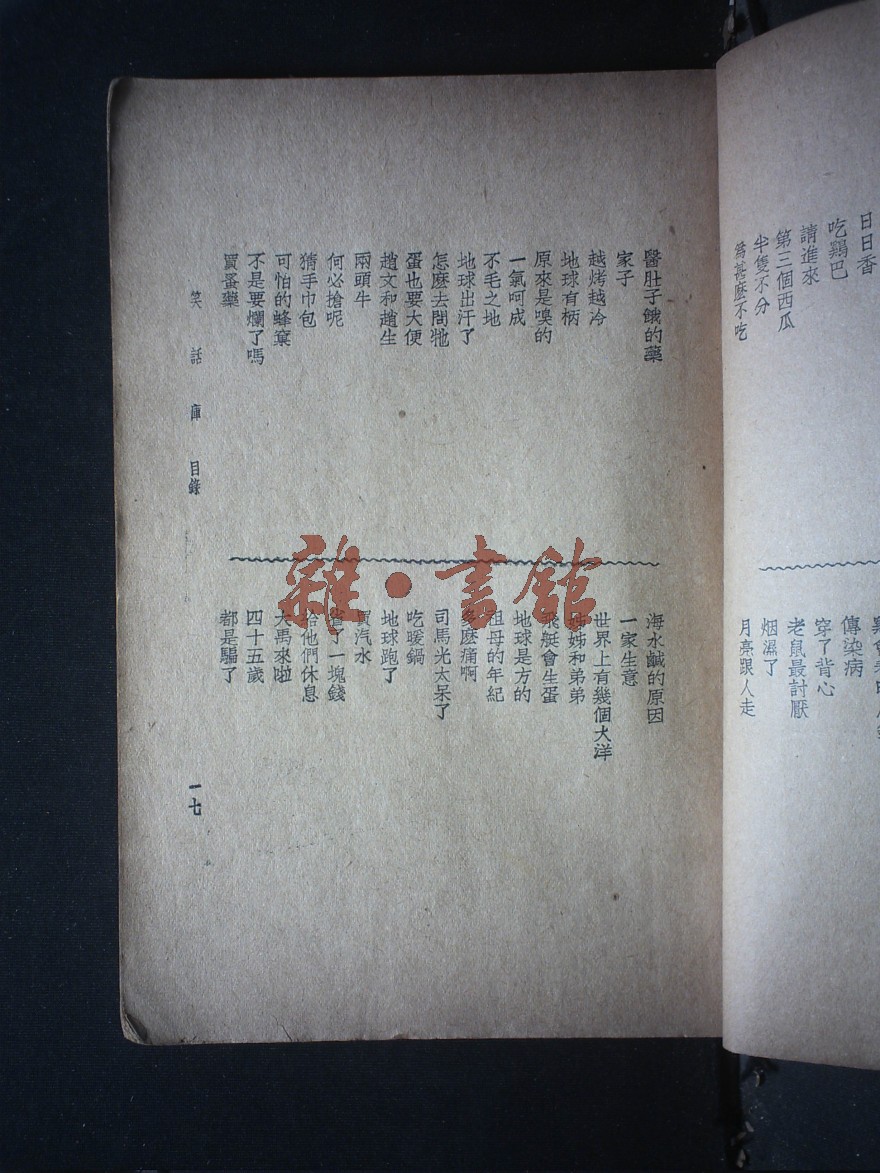 日日香
吃鷄巴
請進來
第三個西瓜
半隻不分
爲甚麼不吃
傳染病
穿了背心
老鼠最討厭
烟濕了
月亮跟人走
醫肚子餓的藥
家子
越烤越冷
地球有柄
原來是嗅的
一氣呵成
不毛之地
地球出汗了
怎麼去問牠
蛋也要大便
趙文和趙生
兩頭牛
何必搶呢
猜手巾包
可怕的蜂窠
不是要爛了嗎
買蚤藥
海水鹹的原因
一家生意
世界上有幾個大洋
姊姊和弟弟
飛艇會生蛋
地球是方的
祖母的年紀
多麼痛啊
司馬光太呆了
吃暖鍋
地球跑了
買汽水
省了一塊錢
給他們休息
大馬來啦
四十五歲
都是騙了
笑話庫目錄
一七
雜·書館